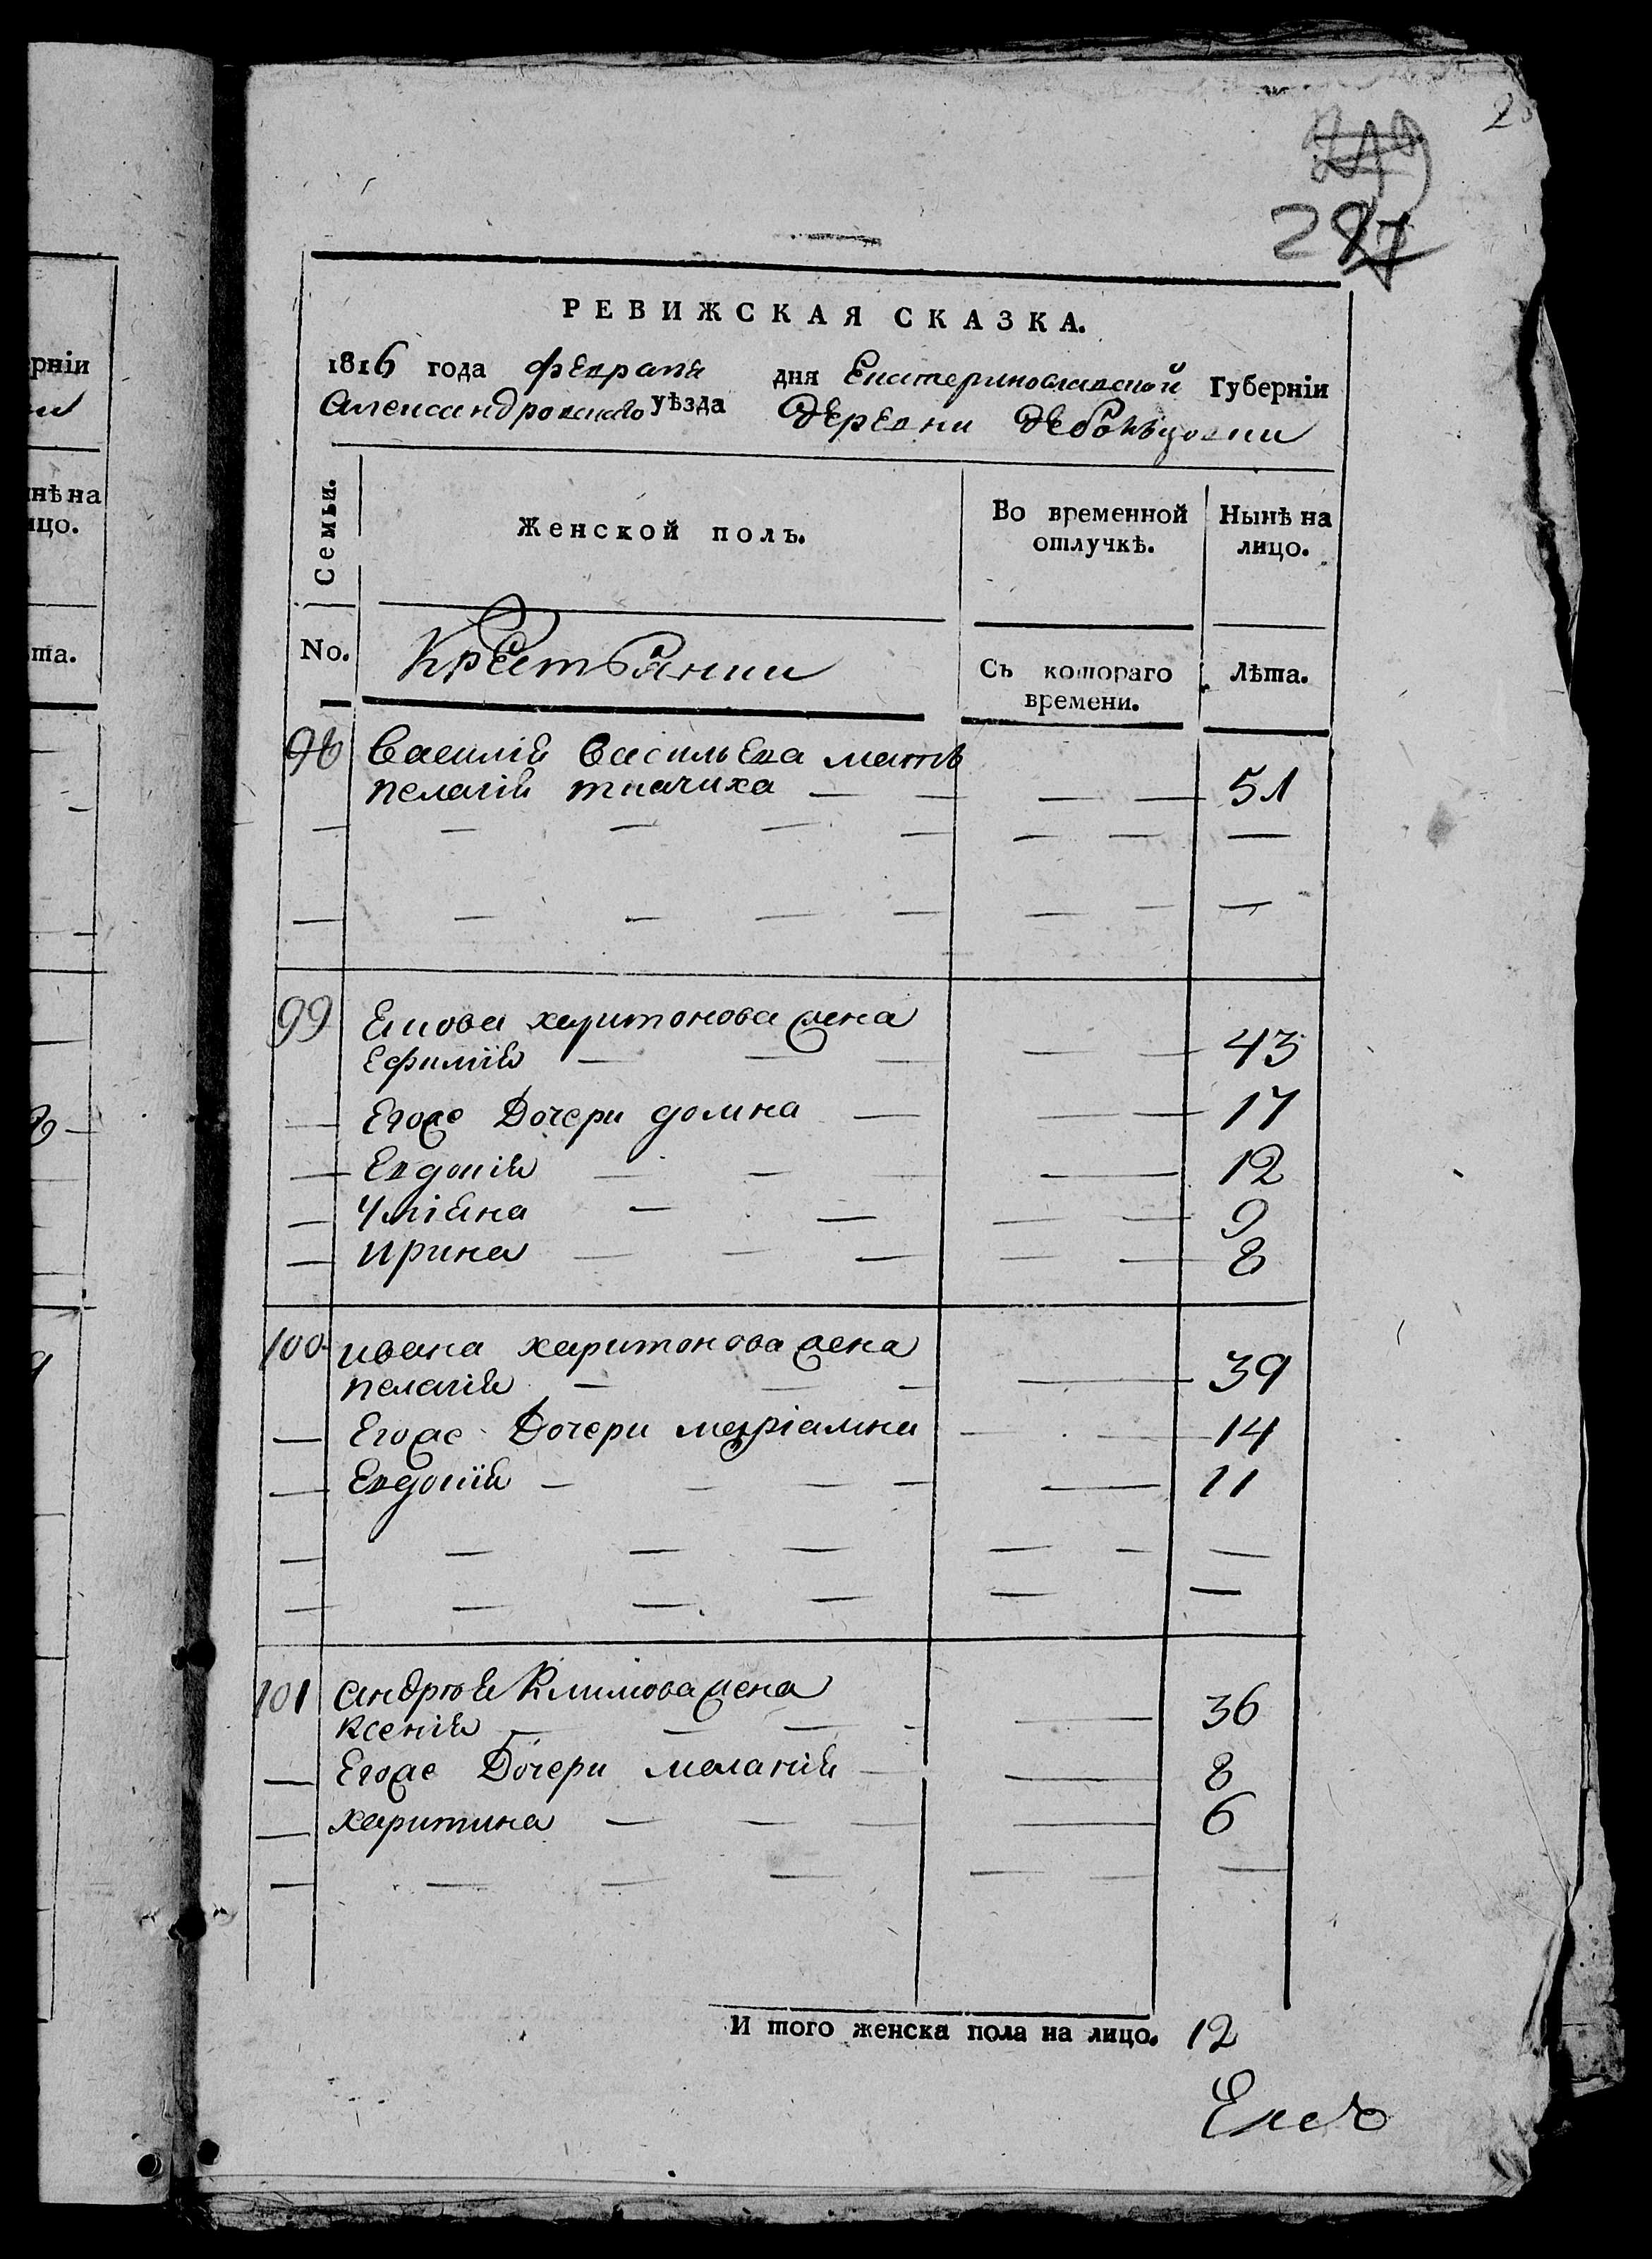 287
РЕВИЖСКАЯ СКАЗКА.
1816 года февраля дня Екатеринославской Губерніи
Александровскаго уѣзда Деревни
Семьи.
Женской полъ.
Во временной отлучкѣ.
Нынѣ на лицо.
No.
Крестьянки
Съ котораго времени.
Лѣта.
98 Василія Васильева мать
пелагія ткачиха — — — — 51
99 Якова харитонова жена
Ефимія — — — — — 43
Егоже Дочери домна — — — 17
Евдокія — — — — 12
Уліяна — — — — 9
ирина — — — — — 8
100 ивана харитонова жена
пелагія — — — — 39
Егоже Дочери маріамна — — 14
Евдокія — — — — — 11
101 андрѣя Климова жена
ксенія — — — — — 36
Егоже Дочери меланія — — 8
харитина — — — — 6
И того женска пола на лицо. 12
рніи
нѣ на
ицо.
та.